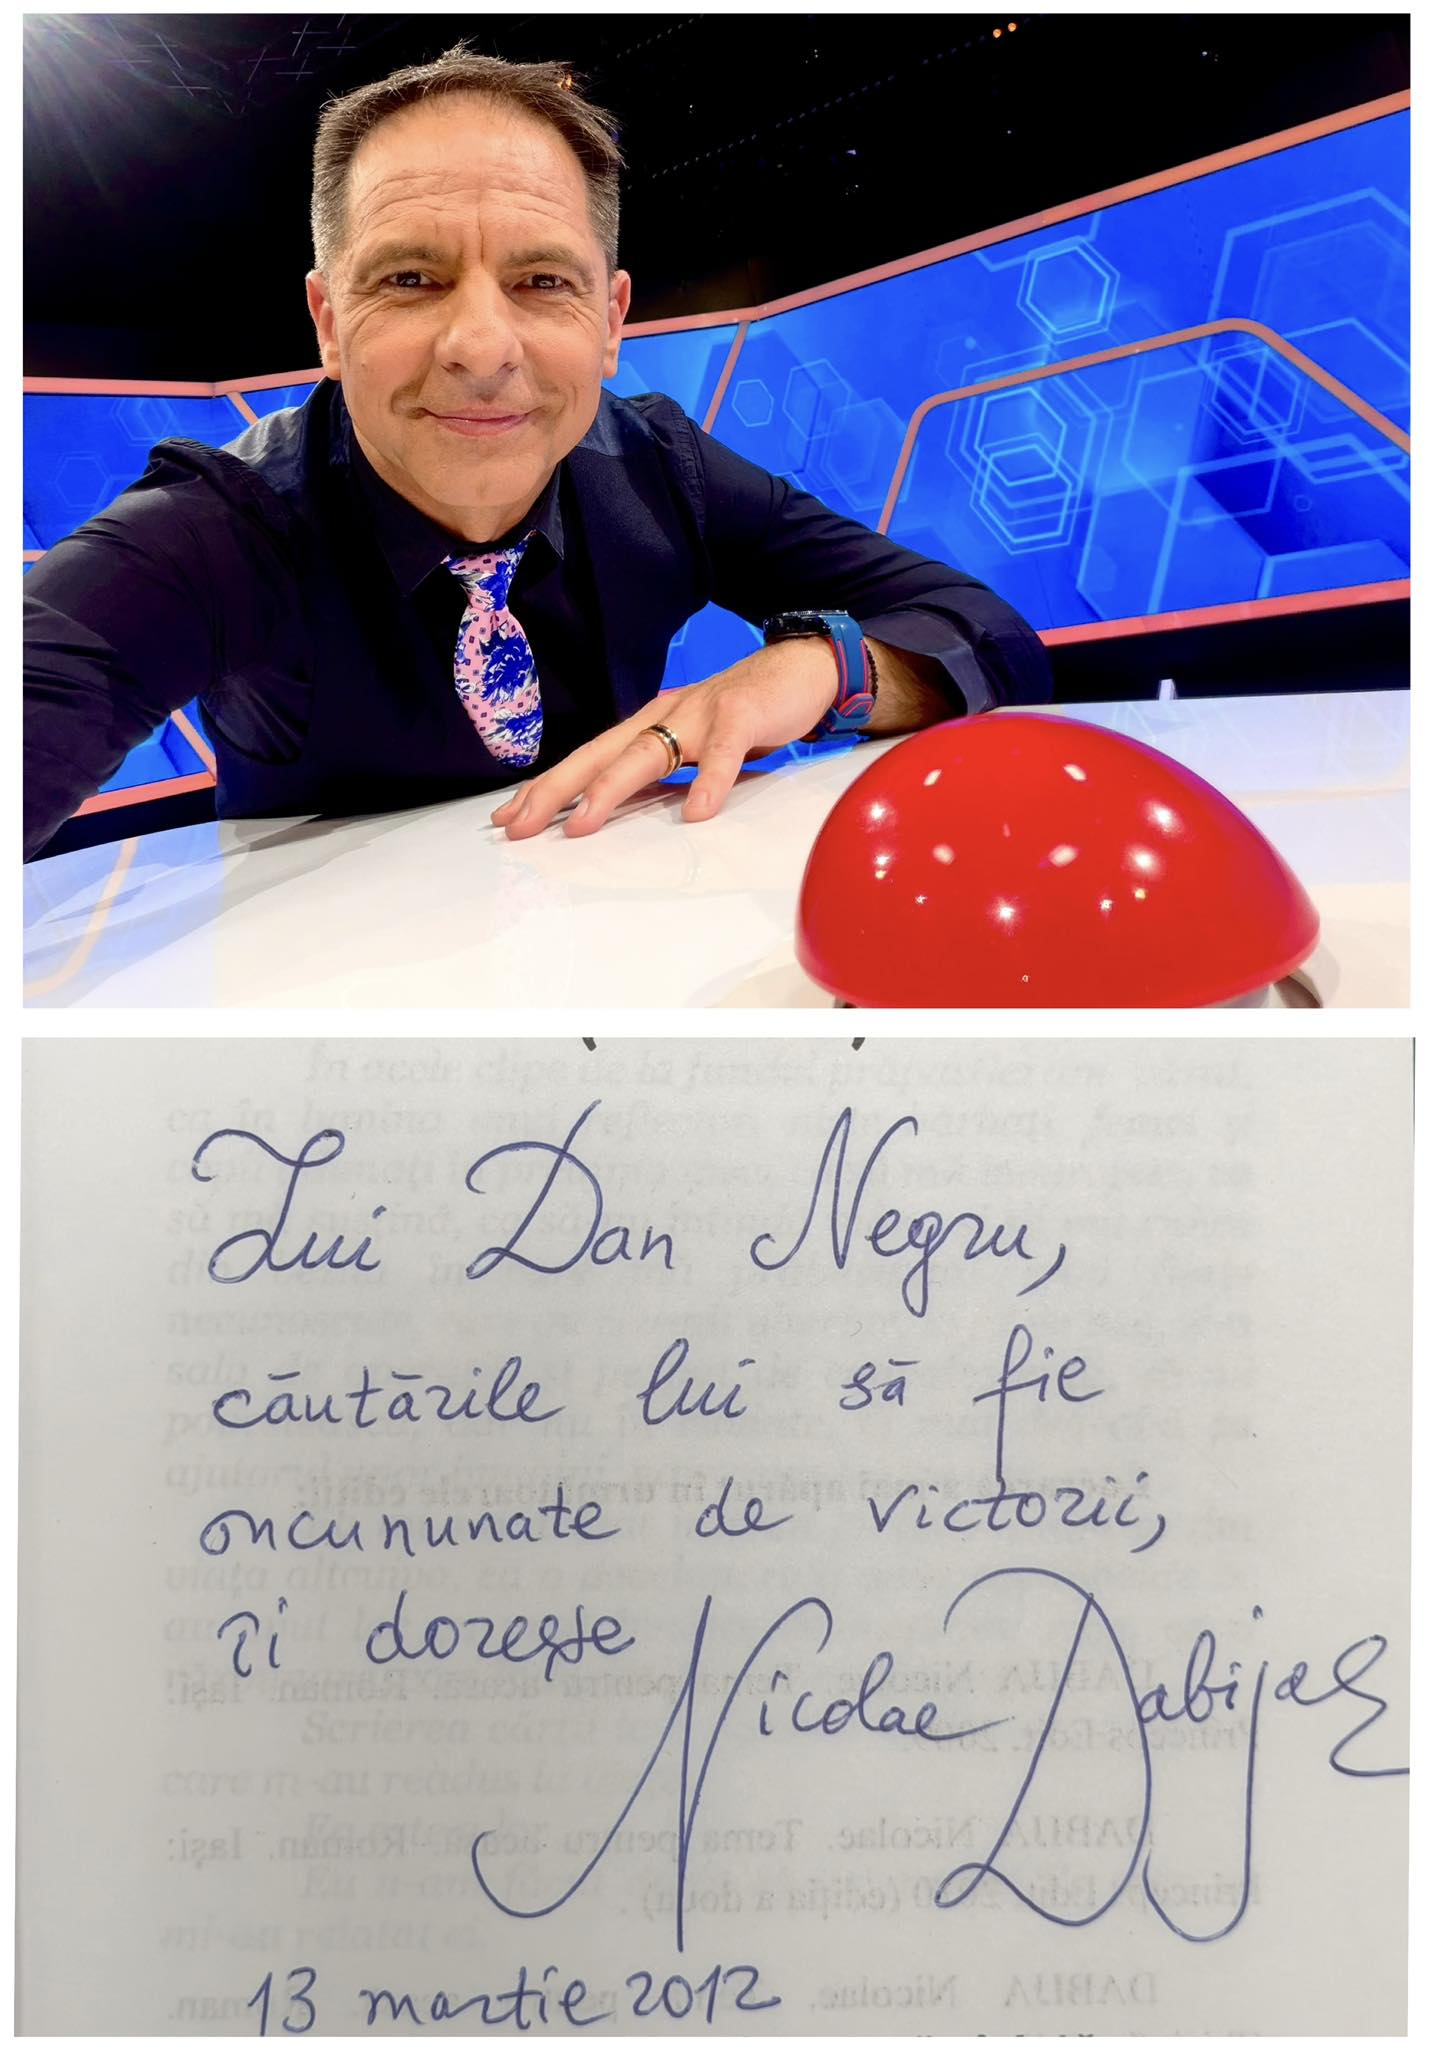 Lui Dan Negru,
căutările lui să fie
încununate de victorii,
îi dorește
Nicolae Dabija
13 martie 2012